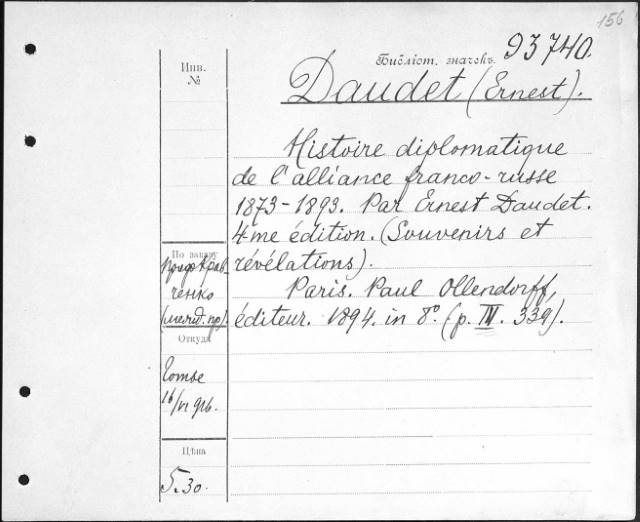 156
Библіот. значекъ 93740.
Инв.
№
Daudet (Ernest).
Histoire diplomatique
de l'alliance franco-russe
1873-1893. Par Ernest Daudet.
4me édition. (Souvenirs et
révélations).
Paris. Paul Ollendorff,
éditeur. 1894. in 8º. (p. IV. 339).
По заказу
Проф. Крав-
ченко
Откуда
16/VI 916.
Цѣна
5.30.